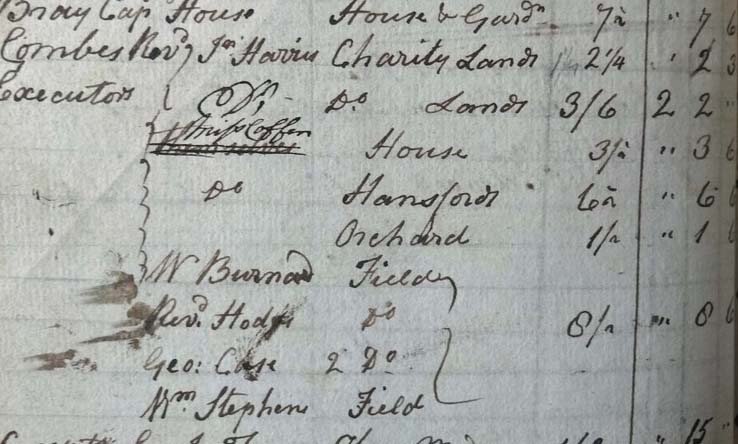 Bray Cap House House & Gardn 7½ " 7 6
Combes Revd Jn Harris Charity Lands 2¼ " 2 3
Executors Do Do Lands 3/6 2 2 "
Miss Coffin
themselves House 3½ " 3 6
Do Hansfords 6½ " 6 6
Orchard 1½ " 1 6
W Burnard Field
Revd Hodge Do 8½ " 8 6
Geo: Case 2 Do
Wm Stephens Field
15 "